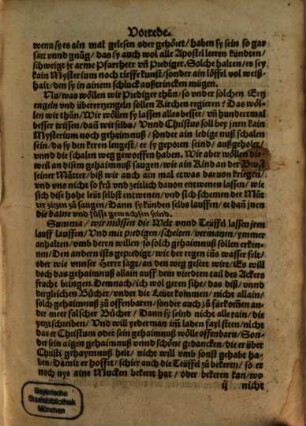 Vorrede.
wenn sys ain mal gelesen oder gehört / haben sy sein so gar
satt vnnd gnůg / das sy auch wol alle Apostel lernen kündten /
schweigt je arme Pfarrherr vñ Prediger. Solche halten / es sey
kain Mysterium noch tieffe kunst / sonder ain löffel vol weiß-
hait / den sy in ainem schluck außtrincken mügen.
Nu / was wöllen wir Prediger thůn / so vnder solchen
engeln und übererzengeln sollen Kirchen regieren? Das wöl-
len wir thůn / Wir wöllen sy lassen alles besser / vñ hundert mal
besser wissen / dañ wir selbs. Vnnd Christus soll bey jnen kain
Mysterium noch gehaimnuß / sonder ain ledige nuß schalen
sein / da sy den keren lengest / er sy gepoten seind / außgeholet /
vnnd die schalen weg geworffen haben. Wir aber wöllen die
weil an disem gehaimnuß saugen / wie ain Kind an der Brüst
seiner Můtter / biß wir auch ain mal etwas daruon kriegen /
vnd vns nicht so frü vnd zeitlich dauon entwenen lassen / wie
sich diß hohe leüt selbst entwenen / vnd sich schemen der Můt-
ter zitzen zů saugen / Dann sy künden selbs lauffen / ee dañ jnen
die baine vnd füsß gewachsen seind.
Summa / wir müssen die Welt vnnd Teüffel lassen jren
lauff lauffen / Vnd mit predigen / schelten / vermanen / jmmer
anhalten / vmb deren willen so solch gehaimnuß sollen erken-
nen / Den andern ists gepredigt / wie der regen ins wasser felt /
oder wie vnser Herre sagt / an den weg geseet wirt / Es will doch
das gehaimnuß allain auff dem vierdten tail des Ackers
frucht bringen. Demnach / ich wol geren sihe / das diß / vnnd
dergleichen Bücher / vnder die Leüt kommen / nicht allain
solch gehaimnuß zů offnen / sonder auch zů fürkommen an-
der meer falscher Bücher / Dann sy seind nicht alle rain / die
yetz schreiben / Vnd will yeder man im laden fayl steen / nicht
das er Christum oder sein gehaimnuß wölle offenbarn / Son-
der sein aigen gehaimnuß vnnd schöne gedancken / die er über
Christi gehaymnuß helt / nicht will vmb sonst gehabt ha-
ben / Damit er hoffet / schier auch die Teüffel zů bekeren / so er
noch nye aine Mucken bekeret hat / oder bekeren kan / wo
q nicht
Bayerische
Staatsbibliothek
München